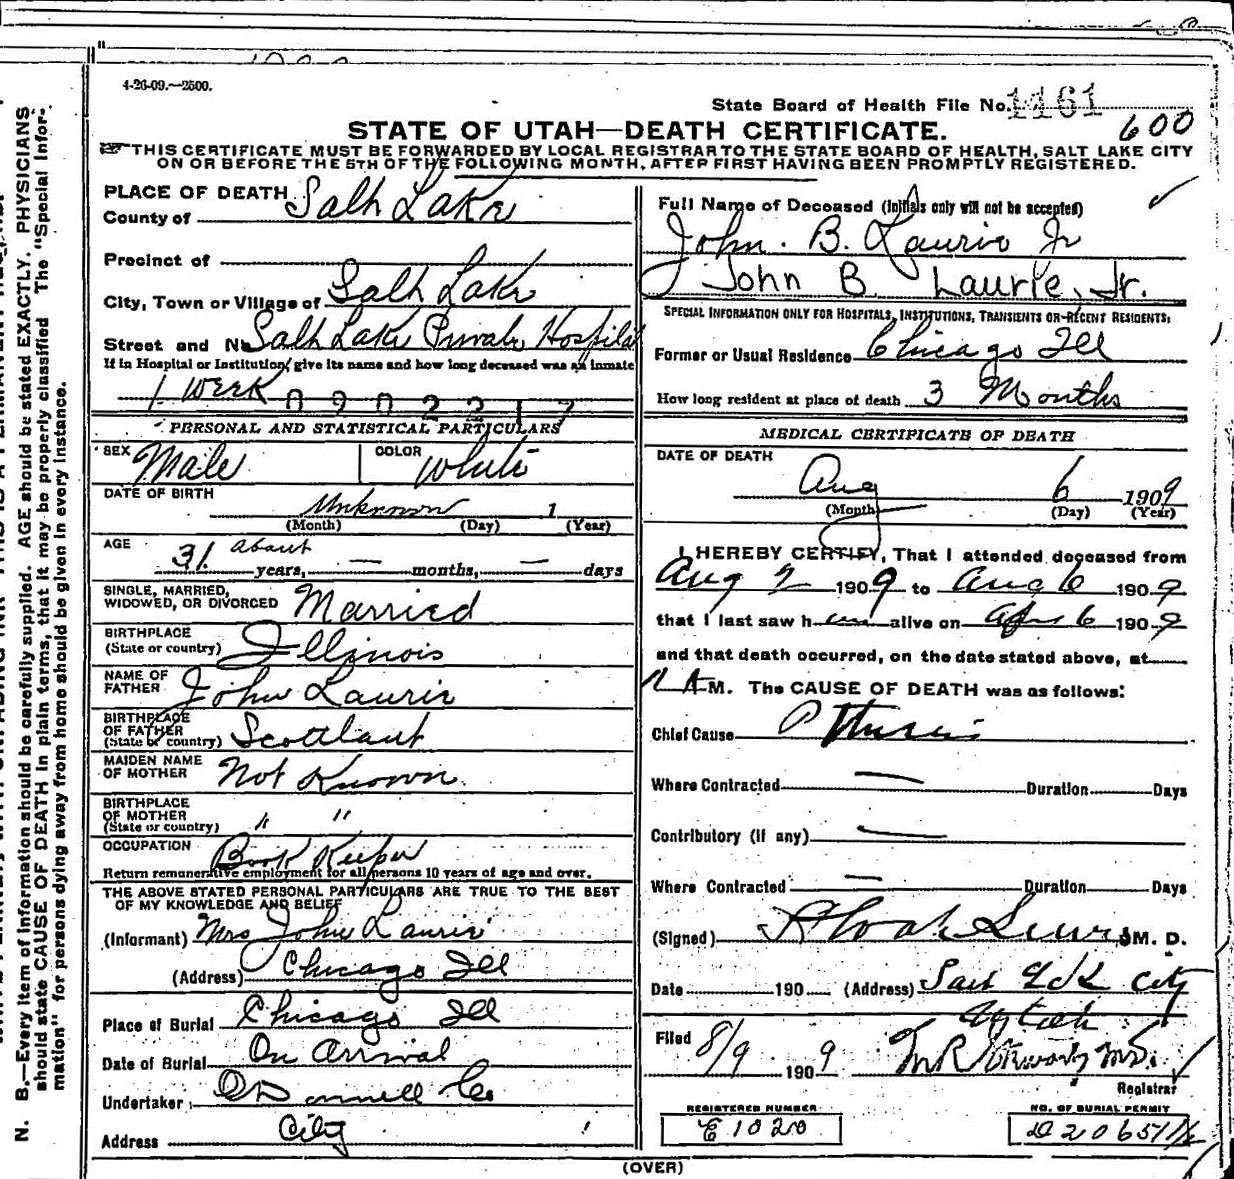 4-26-09.—2500.
State Board of Health File No. 1461
600
STATE OF UTAH—DEATH CERTIFICATE.
THIS CERTIFICATE MUST BE FORWARDED BY LOCAL REGISTRAR TO THE STATE BOARD OF HEALTH, SALT LAKE CITY
ON OR BEFORE THE 5TH OF THE FOLLOWING MONTH, AFTER FIRST HAVING BEEN PROMPTLY REGISTERED.
PLACE OF DEARTH
County of Salt Lake
Precinct of
City, Town or Village of Salt Lake
Street and No. Salt Lake Private Hospital
If in Hospital or Institution, give its name and how long deceased was an inmate
1 Week
0902217
PERSONAL AND STATISTICAL PARTICULARS
SEX Male COLOR White
DATE OF BIRTH
Unknown 1
(Month) (Day) (Year)
AGE 31 about years, — months, — days
SINGLE, MARRIED,
WIDOWED, OR DIVORCED Married
BIRTHPLACE
(State or country) Illinois
NAME OF
FATHER John Laurie
BIRTHPLACE
OF FATHER
(State or country) Scotland
MAIDEN NAME
OF MOTHER Not Known
BIRTHPLACE
OF MOTHER
(State or country) " "
OCCUPATION Book Keeper
Return remunerative employment for all persons 10 years of age and over.
THE ABOVE STATED PERSONAL PARTICULARS ARE TRUE TO THE BEST
OF MY KNOWLEDGE AND BELIEF
(Informant) Mrs John Laurie
(Address) Chicago Ill
Place of Burial Chicago Ill
Date of Burial On Arrival
Undertaker O'Donnell Co
Address City
Full Name of Deceased (Initials only will not be accepted)
John. B. Laurie Jr
John B Laurie, Jr.
SPECIAL INFORMATION ONLY FOR HOSPITALS, INSTITUTIONS, TRANSIENTS OR RECENT RESIDENTS:
Former or Usual Residence Chicago Ill
How long resident at place of death 3 Months
MEDICAL CERTIFICATE OF DEATH
DATE OF DEATH
Aug 6 1909
(Month) (Day) (Year)
I HEREBY CERTIFY, That I attended deceased from
Aug 2 1909 to Aug 6 1909
that I last saw him alive on Aug 6 1909
and that death occurred, on the date stated above, at
A M. The CAUSE OF DEATH was as follows:
Chief Cause Pthisis
Where Contracted — Duration Days
Contributory (if any) —
Where Contracted — Duration Days
(Signed) M. D.
Date 190 (Address) Salt Lake City
Utah
Filed 8/9 1909
Registrar
REGISTERED NUMBER
E1020
NO. OF BURIAL PERMIT
(OVER)
N. B.—Every item of information should be carefully supplied. AGE should be stated EXACTLY. PHYSICIANS
should state CAUSE OF DEATH in plain terms, that it may be properly classified The "Special Infor-
mation" for persons dying away from home should be given in every instance.